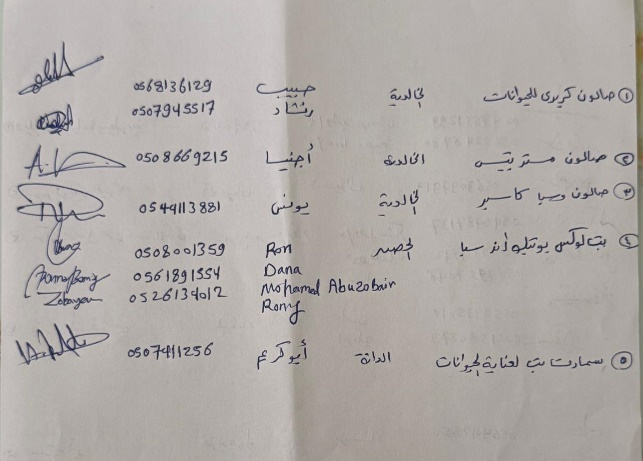 ① صالون كريزي للحيوانات الخالدية حبيب 0568136129
رشاد 0507945517
② صالون مستر بتس الخالدية أجنيا 0508669215
③ صالون وسبا كاسبر الخالدية يونس 0544113881
④ بت لوكس بوتيك اند سبا الحصير Ron 0508001359
Dana 0561891554
Mohamed Abuzobair 0526134012
Romy
⑤ سمارت بت لعناية الحيوانات الدانة أبو كرم 0507411256